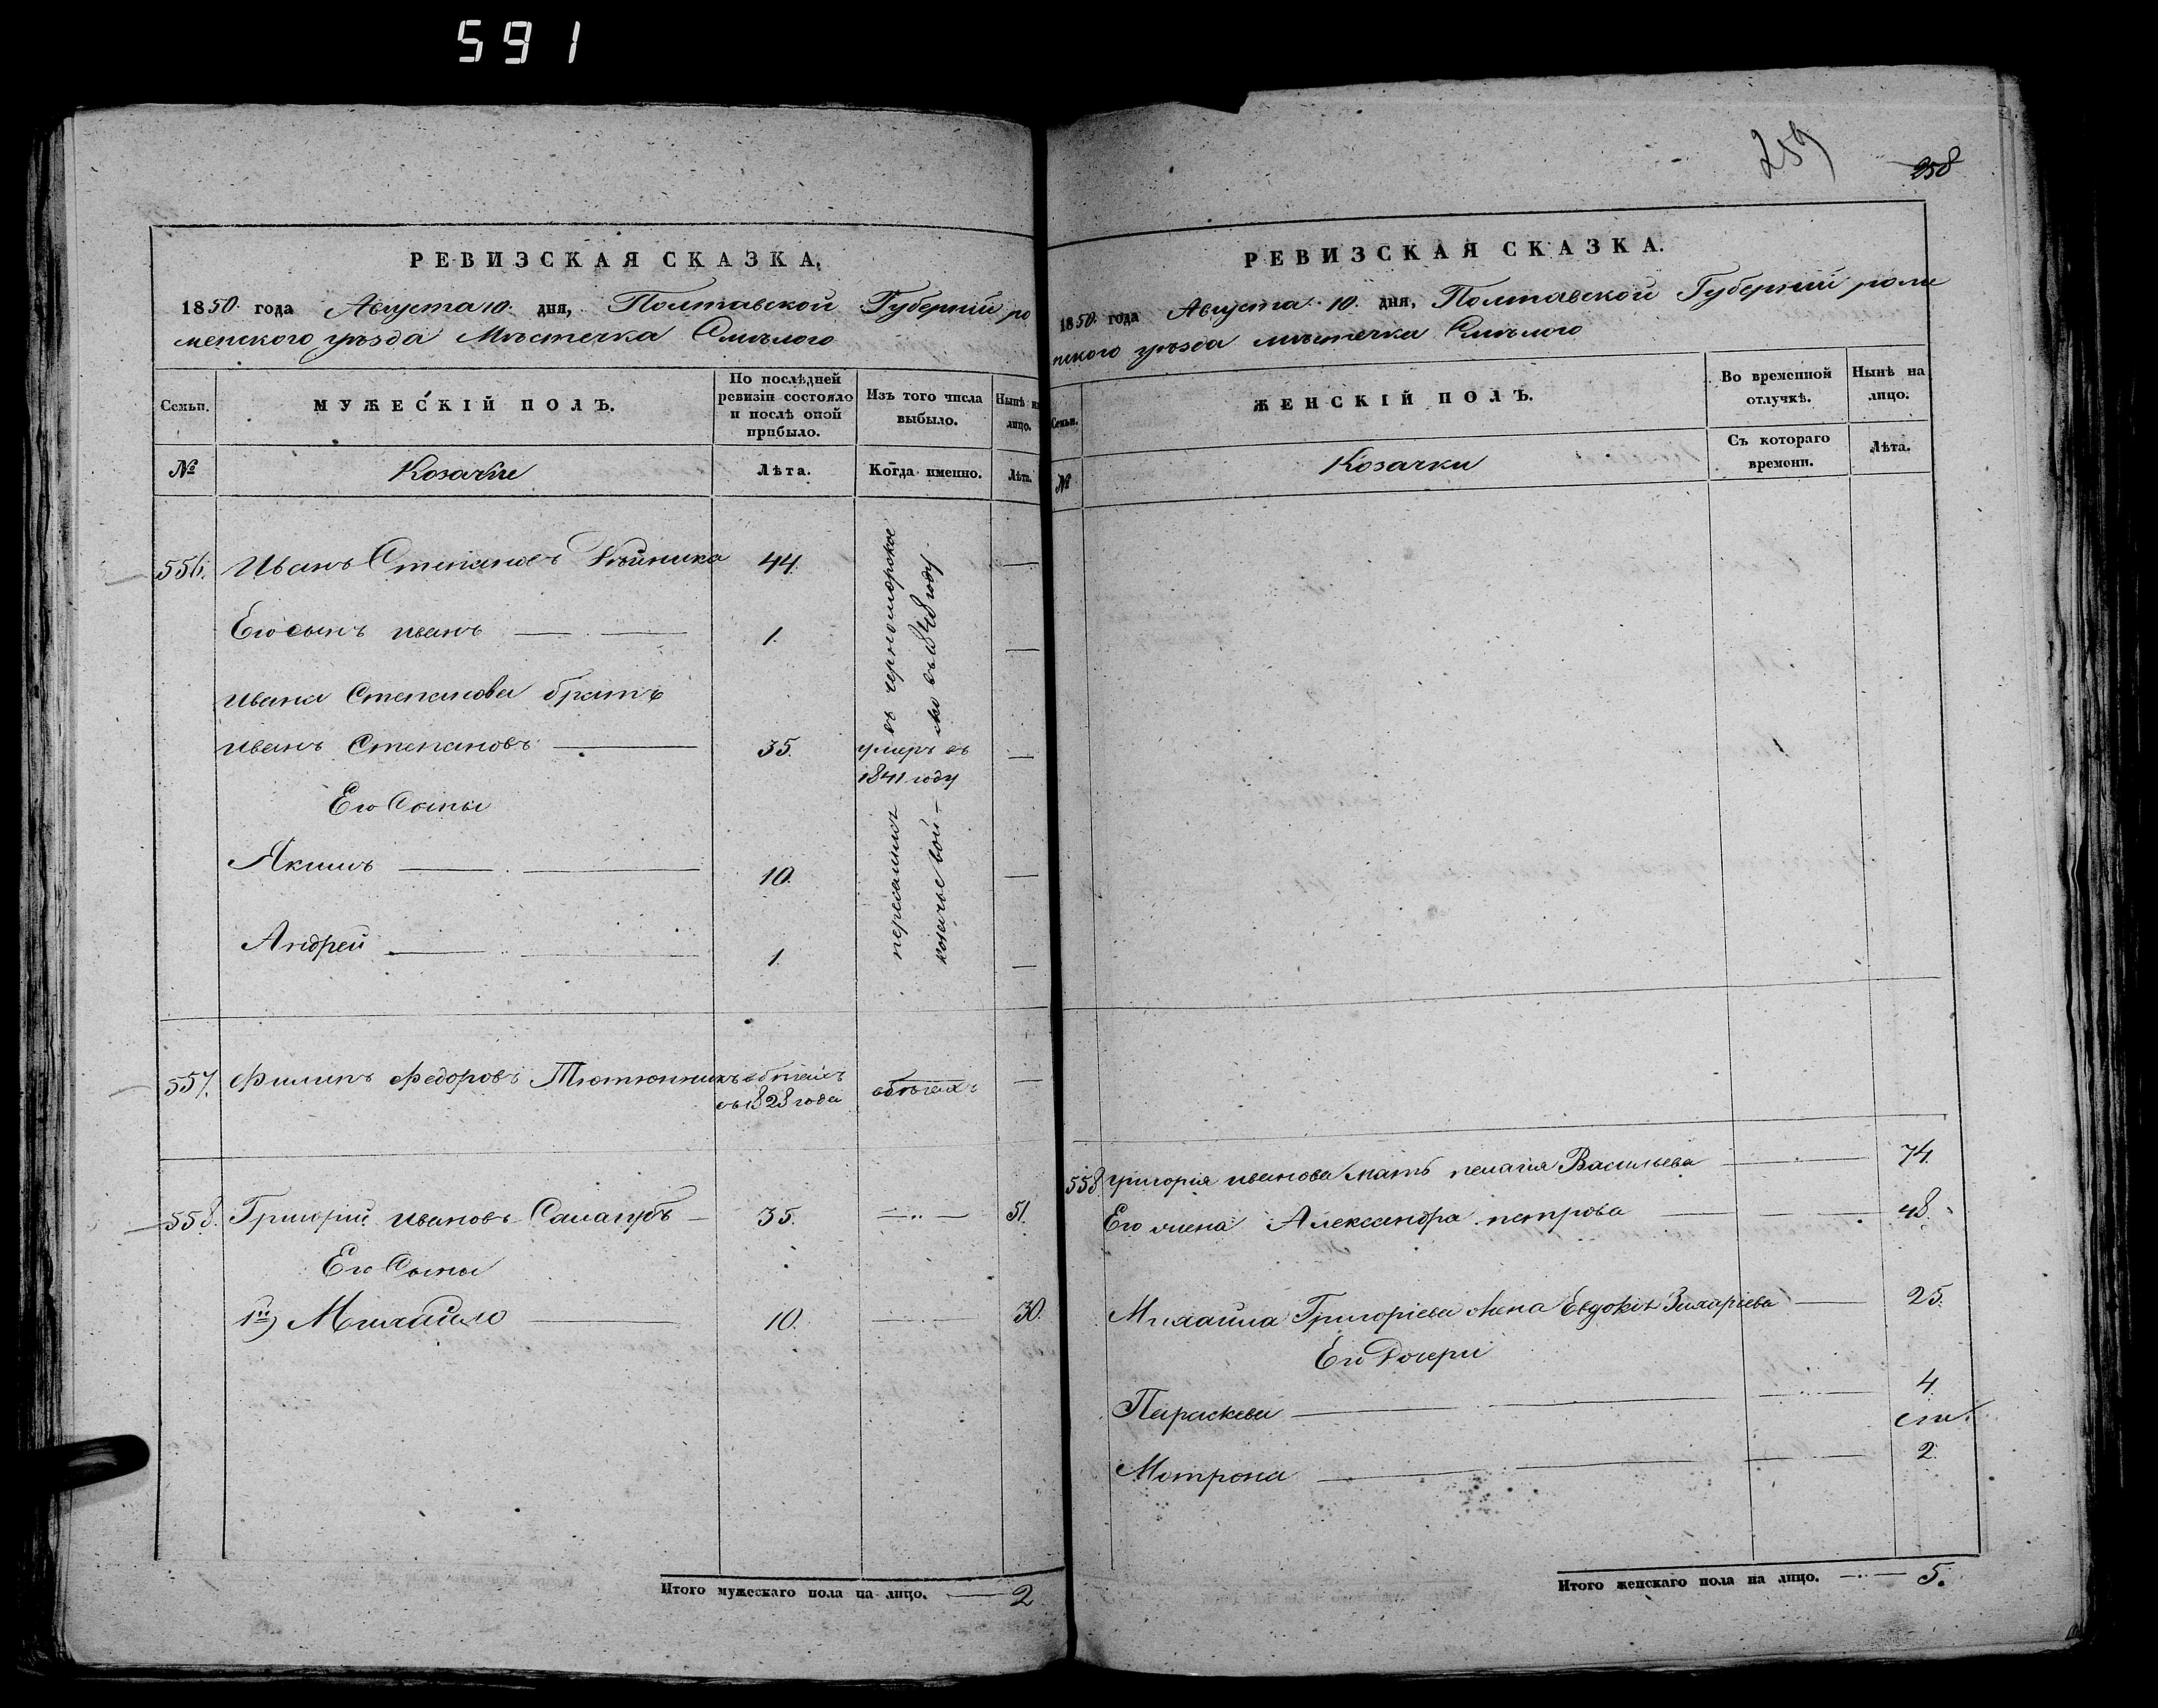 591
РЕВИЗСКАЯ СКАЗКА.
1850 года Августа 10. дня, Полтавской Губерніи ро
менского уѣзда Мѣстечка Смѣлого
Семьи.
МУЖЕСКІЙ ПОЛЪ.
По послѣдней
ревизіи состояло
и послѣ оной
прибыло.
Изъ того числа
выбыло.
Нынѣ на
лицо.
№
Козачьи
Лѣта.
Когда именно.
Лѣта.
556. Иванъ Степановъ 44. —
Его сынъ иванъ — 1. —
Ивана Степанова братъ
иванъ Степановъ — 35. умеръ въ —
1841 году
Его Сыны
Якимъ — 10. —
Андрей — 1. —
въ черноморское
козачье вой-
ско въ 1848 году
557. Филипъ Федоровъ Тютюнникъ въ бѣгахъ въ бѣгахъ —
съ 1828 года
558. Григорий ивановъ Самагубъ — 35. — 51.
Его Сыны
1й) Михайло — 10. — 30.
Итого мужескаго пола на лицо. — 2
259
258
РЕВИЗСКАЯ СКАЗКА.
1850 года Августа 10. дня, Полтавской Губерніи роме
нского уѣзда мѣстечка Смѣлого
Семьи.
ЖЕНСКІЙ ПОЛЪ.
Во временной
отлучкѣ.
Нынѣ на
лицо.
№
Козачки
Съ котораго
времени.
Лѣта.
558 григорія иванова мать пелагія Васильева — 74.
Его жена Александра петрова — 48.
Михаила Григоріева жена Евдокія Захаріева — 25.
Его Дочери
Параскева — 4.
Мотрона — 2.
Итого женскаго пола на лицо. — 5.